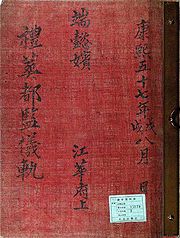 康熙五十七年戊戌八月 日
端懿嬪 江華府上
禮葬都監儀軌